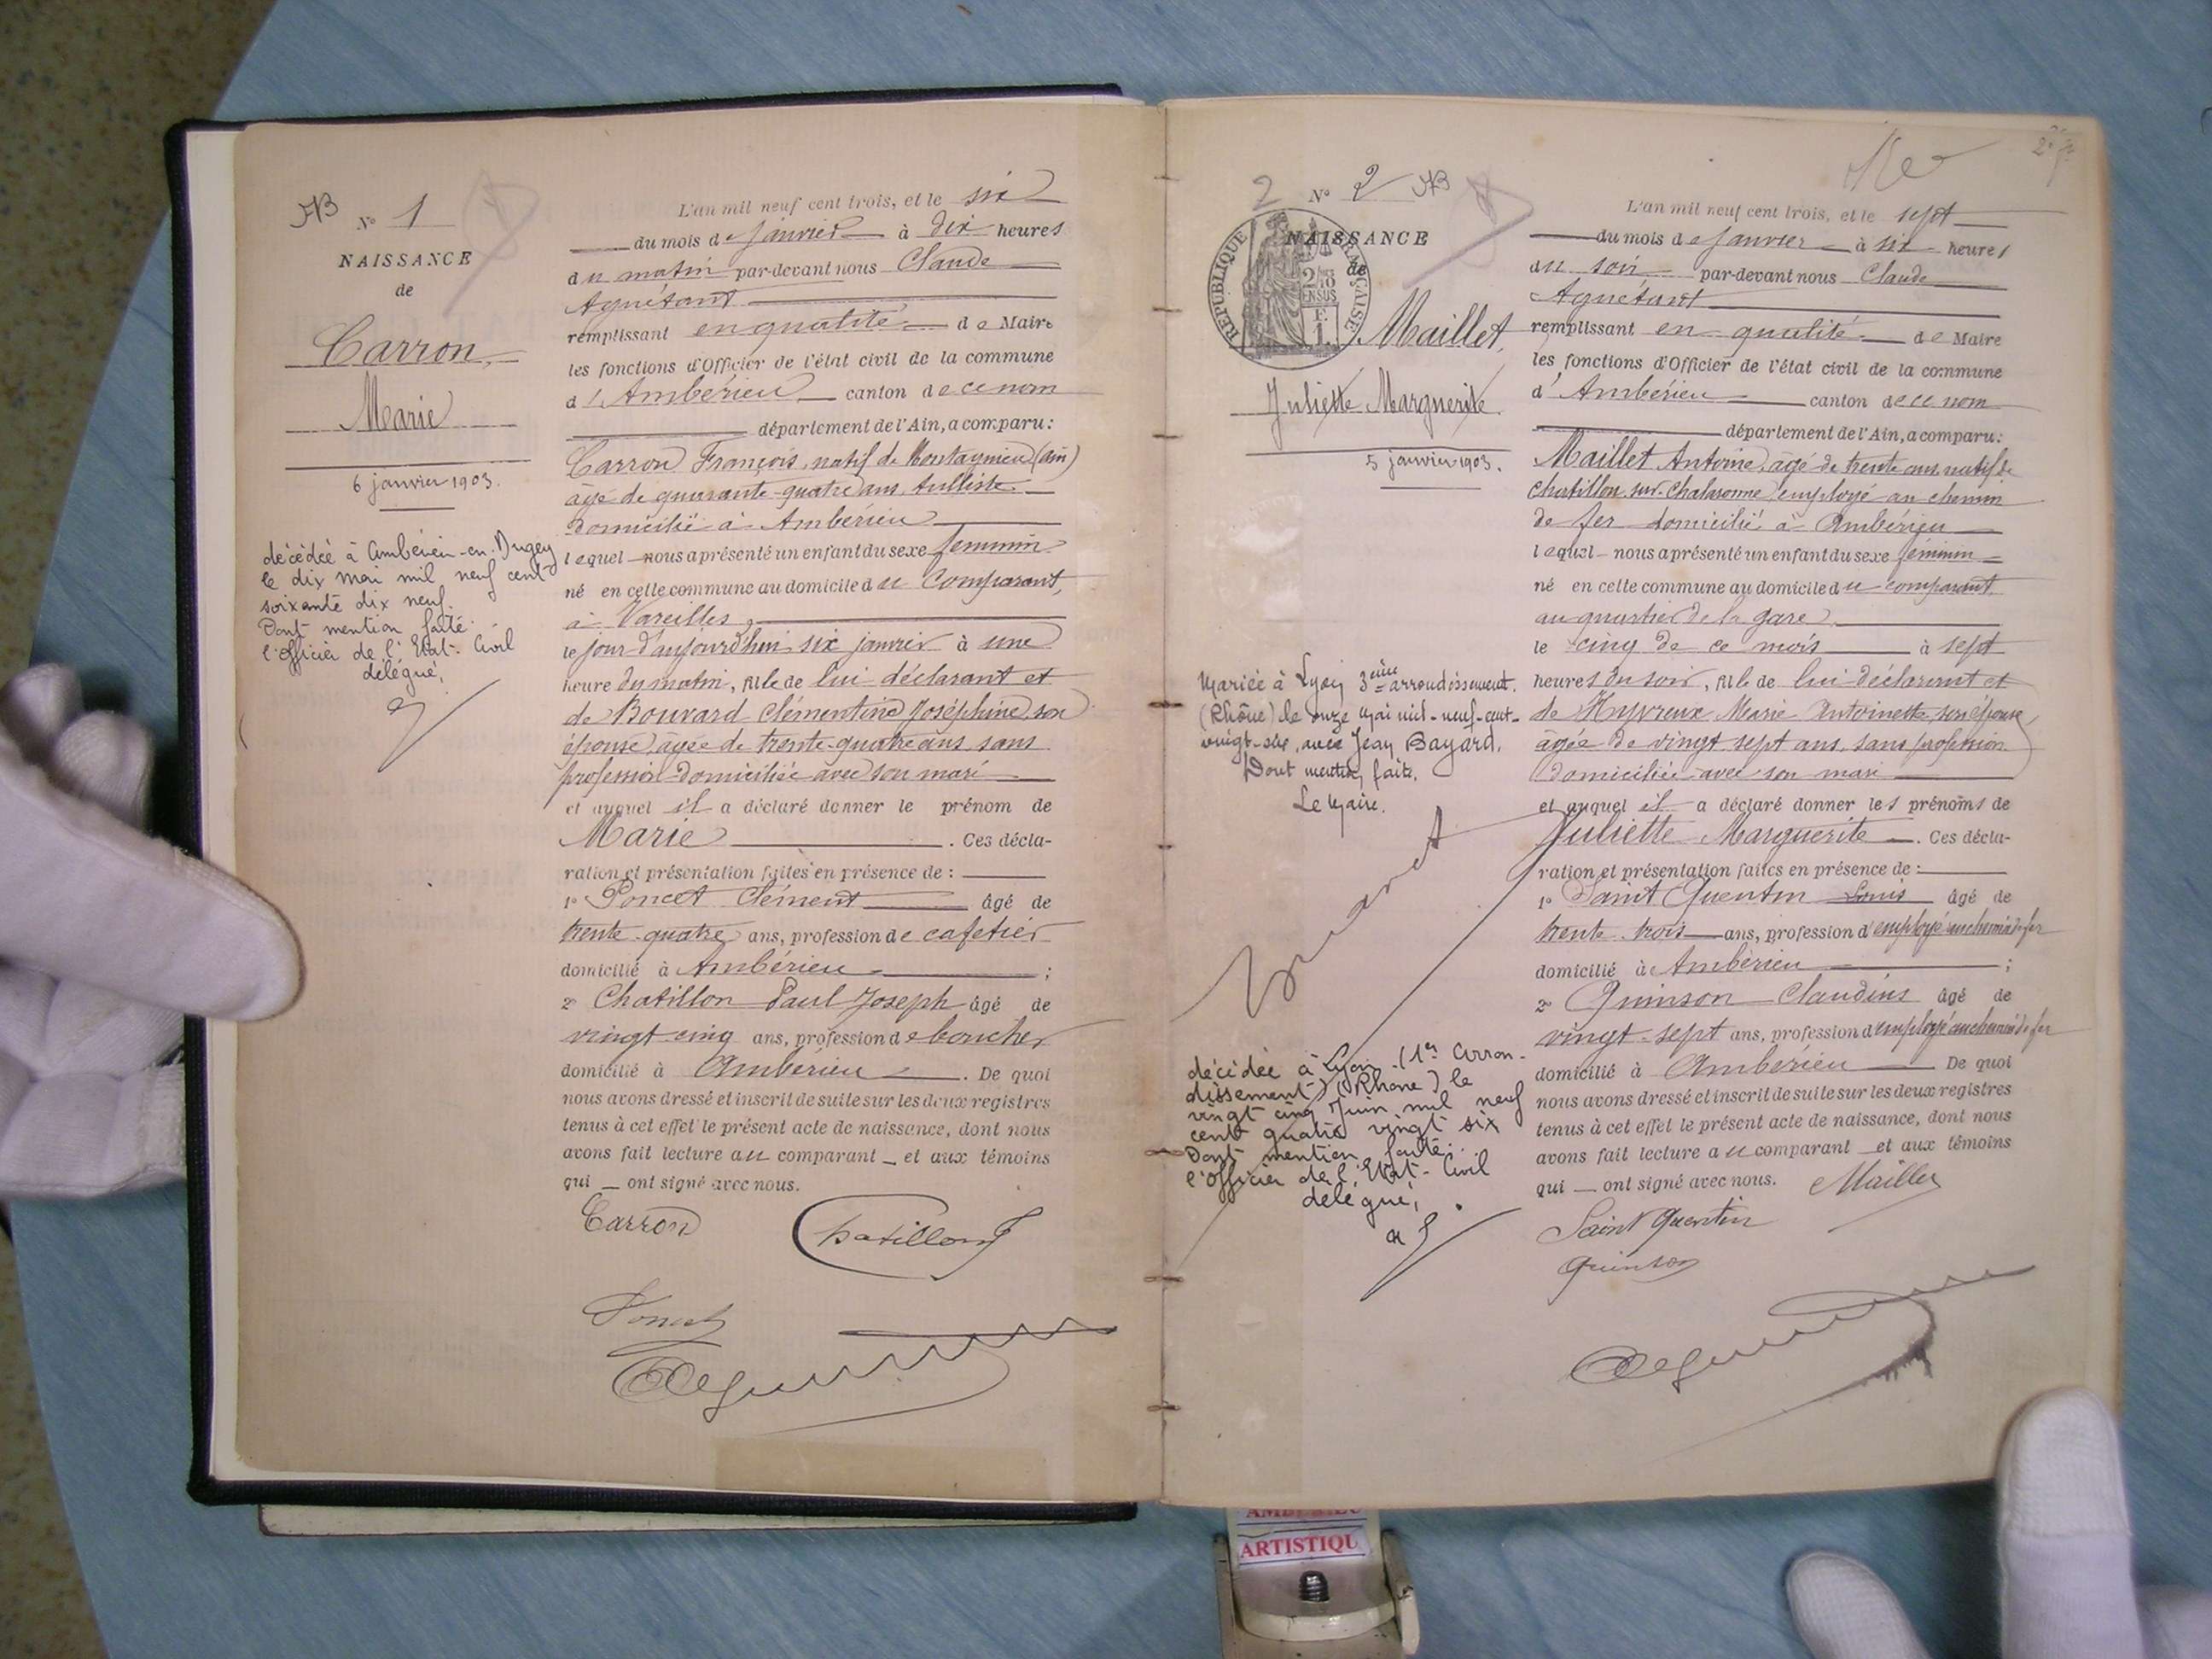 AB N° 1
NAISSANCE
de
Carron,
Marie
6 janvier 1903.
décédée à Ambérieu-en-Bugey
le dix mai mil neuf cent
soixante dix neuf.
Dont mention faite.
l'officier de l'Etat-Civil
délégué,
L'an mil neuf cent trois, et le six
du mois de janvier à dix heures
du matin par-devant nous Claude
Aguétant
remplissant en qualité de Maire
les fonctions d'Officier de l'état civil de la commune
d'Ambérieu canton de ce nom
département de l'Ain, a comparu:
Carron François, natif de Montagnieu (Ain)
âgé de quarante-quatre ans, tulliste
domicilié à Ambérieu
lequel nous a présenté un enfant du sexe féminin
né en cette commune au domicile du comparant,
à Vareilles,
le jour d'aujourd'hui six janvier à une
heure du matin, fille de lui déclarant et
de Bouvard Clémentine Joséphine son
épouse, âgée de trente-quatre ans, sans
profession domiciliée avec son mari
et auquel il a déclaré donner le prénom de
Marie . Ces décla-
ration et présentation faites en présence de :
1° Poncet Clément âgé de
trente-quatre ans, profession de cafetier
domicilié à Ambérieu ;
2° Chatillon Paul Joseph âgé de
vingt cinq ans, profession de boucher
domicilié à Ambérieu . De quoi
nous avons dressé et inscrit de suite sur les deux registres
tenus à cet effet le présent acte de naissance, dont nous
avons fait lecture au comparant et aux témoins
qui ont signé avec nous.
Carron Chatillon
Poncet
2 N° 2 AB
NAISSANCE
de
RÉPUBLIQUE FRANÇAISE
Maillet,
Juliette Marguerite.
5 janvier 1903.
Mariée à Lyon 3ème arrondissement.
(Rhône) le onze mai mil-neuf-cent-
vingt-six, avec Jean Bayard.
Dont mention faite.
Le Maire.
décédée à Lyon (1er Arron-
dissement) (Rhône) le
vingt cinq Juin mil neuf
cent quatre vingt six
Dont mention faite.
l'officier de l'Etat-Civil
délégué,
L'an mil neuf cent trois, et le sept
du mois de janvier à six heures
du soir par-devant nous Claude
Aguétant
remplissant en qualité de Maire
les fonctions d'Officier de l'état civil de la commune
d'Ambérieu canton de ce nom
département de l'Ain, a comparu:
Maillet Antoine, âgé de trente ans, natif de
Chatillon-sur-Chalaronne employé au chemin
de fer domicilié à Ambérieu
lequel nous a présenté un enfant du sexe féminin
né en cette commune au domicile du comparant
au quartier de la gare
le cinq de ce mois à sept
heures du soir, fille de lui déclarant et
de Hyvreux Marie Antoinette son épouse,
âgée de vingt sept ans, sans profession
domiciliée avec son mari
et auquel il a déclaré donner les prénoms de
Juliette Marguerite . Ces décla-
ration et présentation faites en présence de :
1° Saint Quentin Louis âgé de
trente-trois ans, profession d'employé au chemin de fer
domicilié à Ambérieu ;
2° Quinson Claudius âgé de
vingt-sept ans, profession d'employé au chemin de fer
domicilié à Ambérieu De quoi
nous avons dressé et inscrit de suite sur les deux registres
tenus à cet effet le présent acte de naissance, dont nous
avons fait lecture au comparant et aux témoins
qui ont signé avec nous. Maillet
Saint Quentin
Quinson
ARTISTIQU